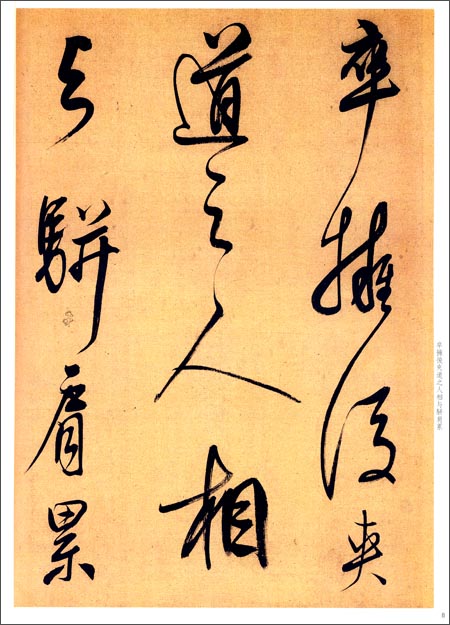 卒擁後夾
道之人相
与駢肩累
卒擁後夾道之人相与駢肩累
8